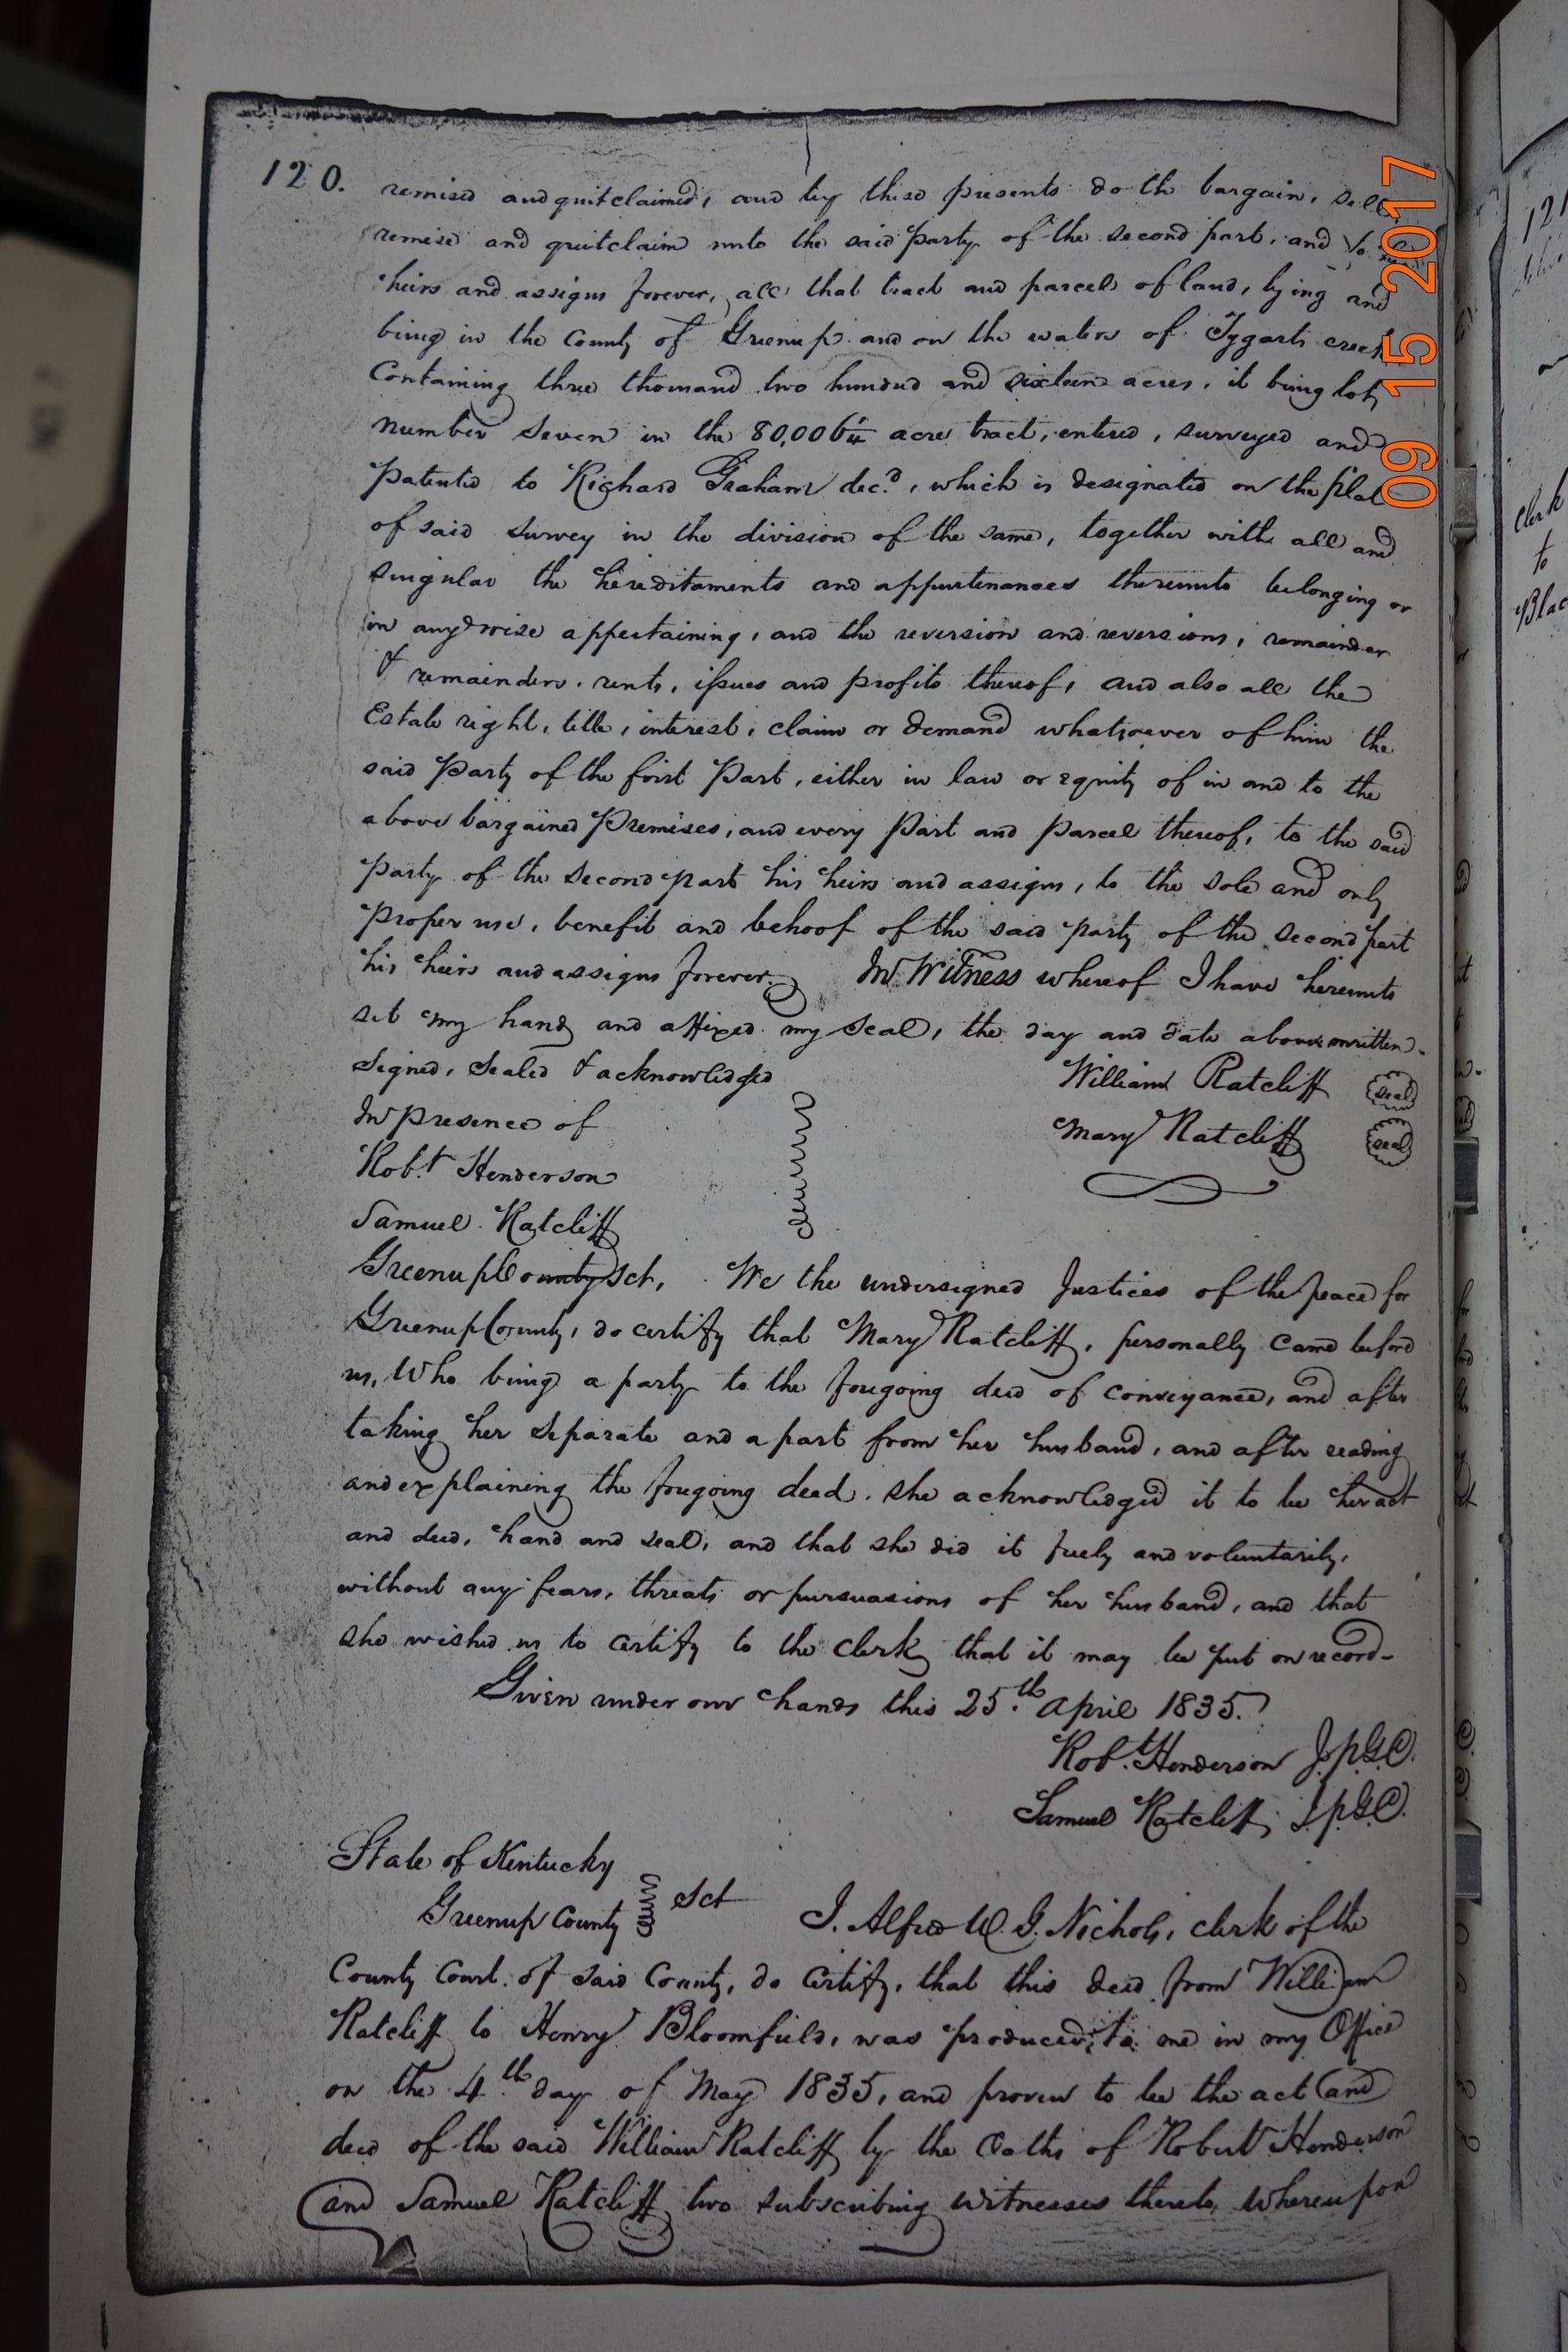 120.
remised and quitclaimed, and by these presents doth bargain, sell
remise and quitclaim unto the said party of the second part, and to
heirs and assigns forever, all that tract and parcel of land, lying and
being in the County of Greenup and on the waters of Tygarts creek
Containing three thousand two hundred and sixteen acres, it being lot
number Seven in the acre tract, entered, surveyed and
Patented to Richard Graham dec.d, which is designated on the plat
of said survey in the division of the same, together with all and
singular the hereditaments and appurtenances thereunto belonging or
in any wise appertaining, and the reversion and reversions, remainder
& remainders. rents, issues and profits thereof, and also all the
Estate right, title, interest, claim or demand whatsoever of him the
said Party of the first Part, either in law or equity of in and to the
above bargained Premises, and every Part and Parcel thereof, to the said
Party of the Second part his heirs and assigns, to the sole and only
Proper use, benefit and behoof of the said party of the second part
his heirs and assigns forever. In Witness whereof I have hereunto
set my hand and affixed my seal, the day and date above written.
Signed, Sealed & acknowledged
In presence of
Robt. Henderson
Samuel Ratcliff
William Ratcliff seal
Mary Ratcliff seal
Greenup County Sct. We the undersigned Justices of the peace for
Greenup County, do certify that Mary Ratcliff, personally came before
us, Who being a party to the foregoing deed of conveyance, and after
taking her separate and apart from her husband, and after reading
and explaining the foregoing deed. she acknowledged it to be her act
and deed, hand and seal, and that she did it freely and voluntarily,
without any fears, threats or pursuasions of her husband, and that
she wished us to certify to the clerk that it may be put on record-
Given under our hands this 25.th April 1835.
Robt. Henderson J.P.G.C.
Samuel Ratcliff J.P.G.C.
State of Kentucky
Greenup County Sct I. Alfred W. G. Nichols, clerk of the
County Court. of said County, do certify, that this deed from William
Ratcliff to Henry Bloomfield, was produced to me in my Office
on the 4.th day of May 1835, and proven to be the act and
deed of the said William Ratcliff by the Oaths of Robert Henderson
and Samuel Ratcliff two subscribing witnesses thereto, whereupon
09 15 2017
121
clerk
to